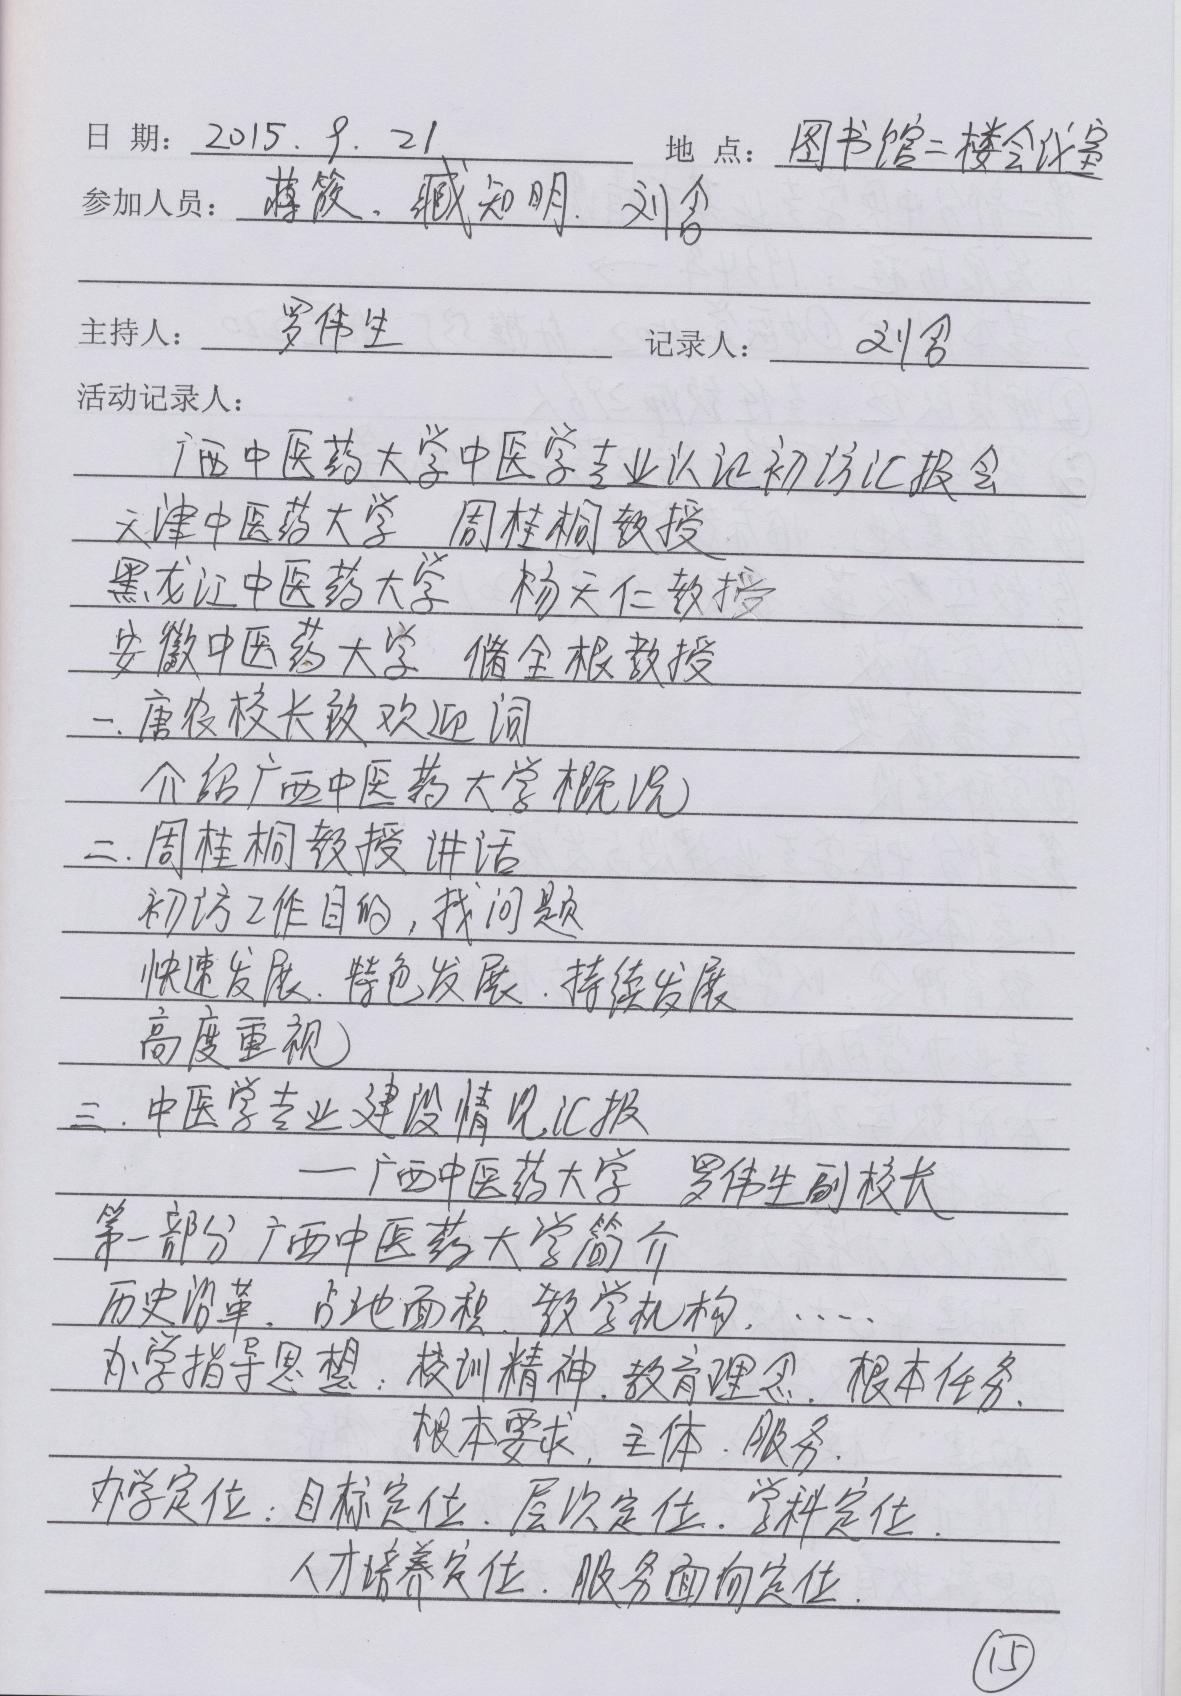 日 期： 2015.9.21 地 点： 图书馆二楼会议室
参加人员： 蒋筱、臧知明、刘
主持人： 罗伟生 记录人： 刘
活动记录人：
广西中医药大学中医学专业认证初访汇报会
天津中医药大学 周桂桐教授
黑龙江中医药大学 杨天仁教授
安徽中医药大学 储全根教授
一.唐农校长致欢迎词
介绍广西中医药大学概况
二.周桂桐教授讲话
初访工作目的，找问题
快速发展、特色发展、持续发展
高度重视
三.中医学专业建设情况汇报
—广西中医药大学 罗伟生副校长
第一部分 广西中医药大学简介
历史沿革、占地面积、教学机构、·····
办学指导思想：校训精神、教育理念、根本任务、
根本要求、主体、服务.
办学定位：目标定位、层次定位、学科定位、
人才培养定位、服务面向定位.
15